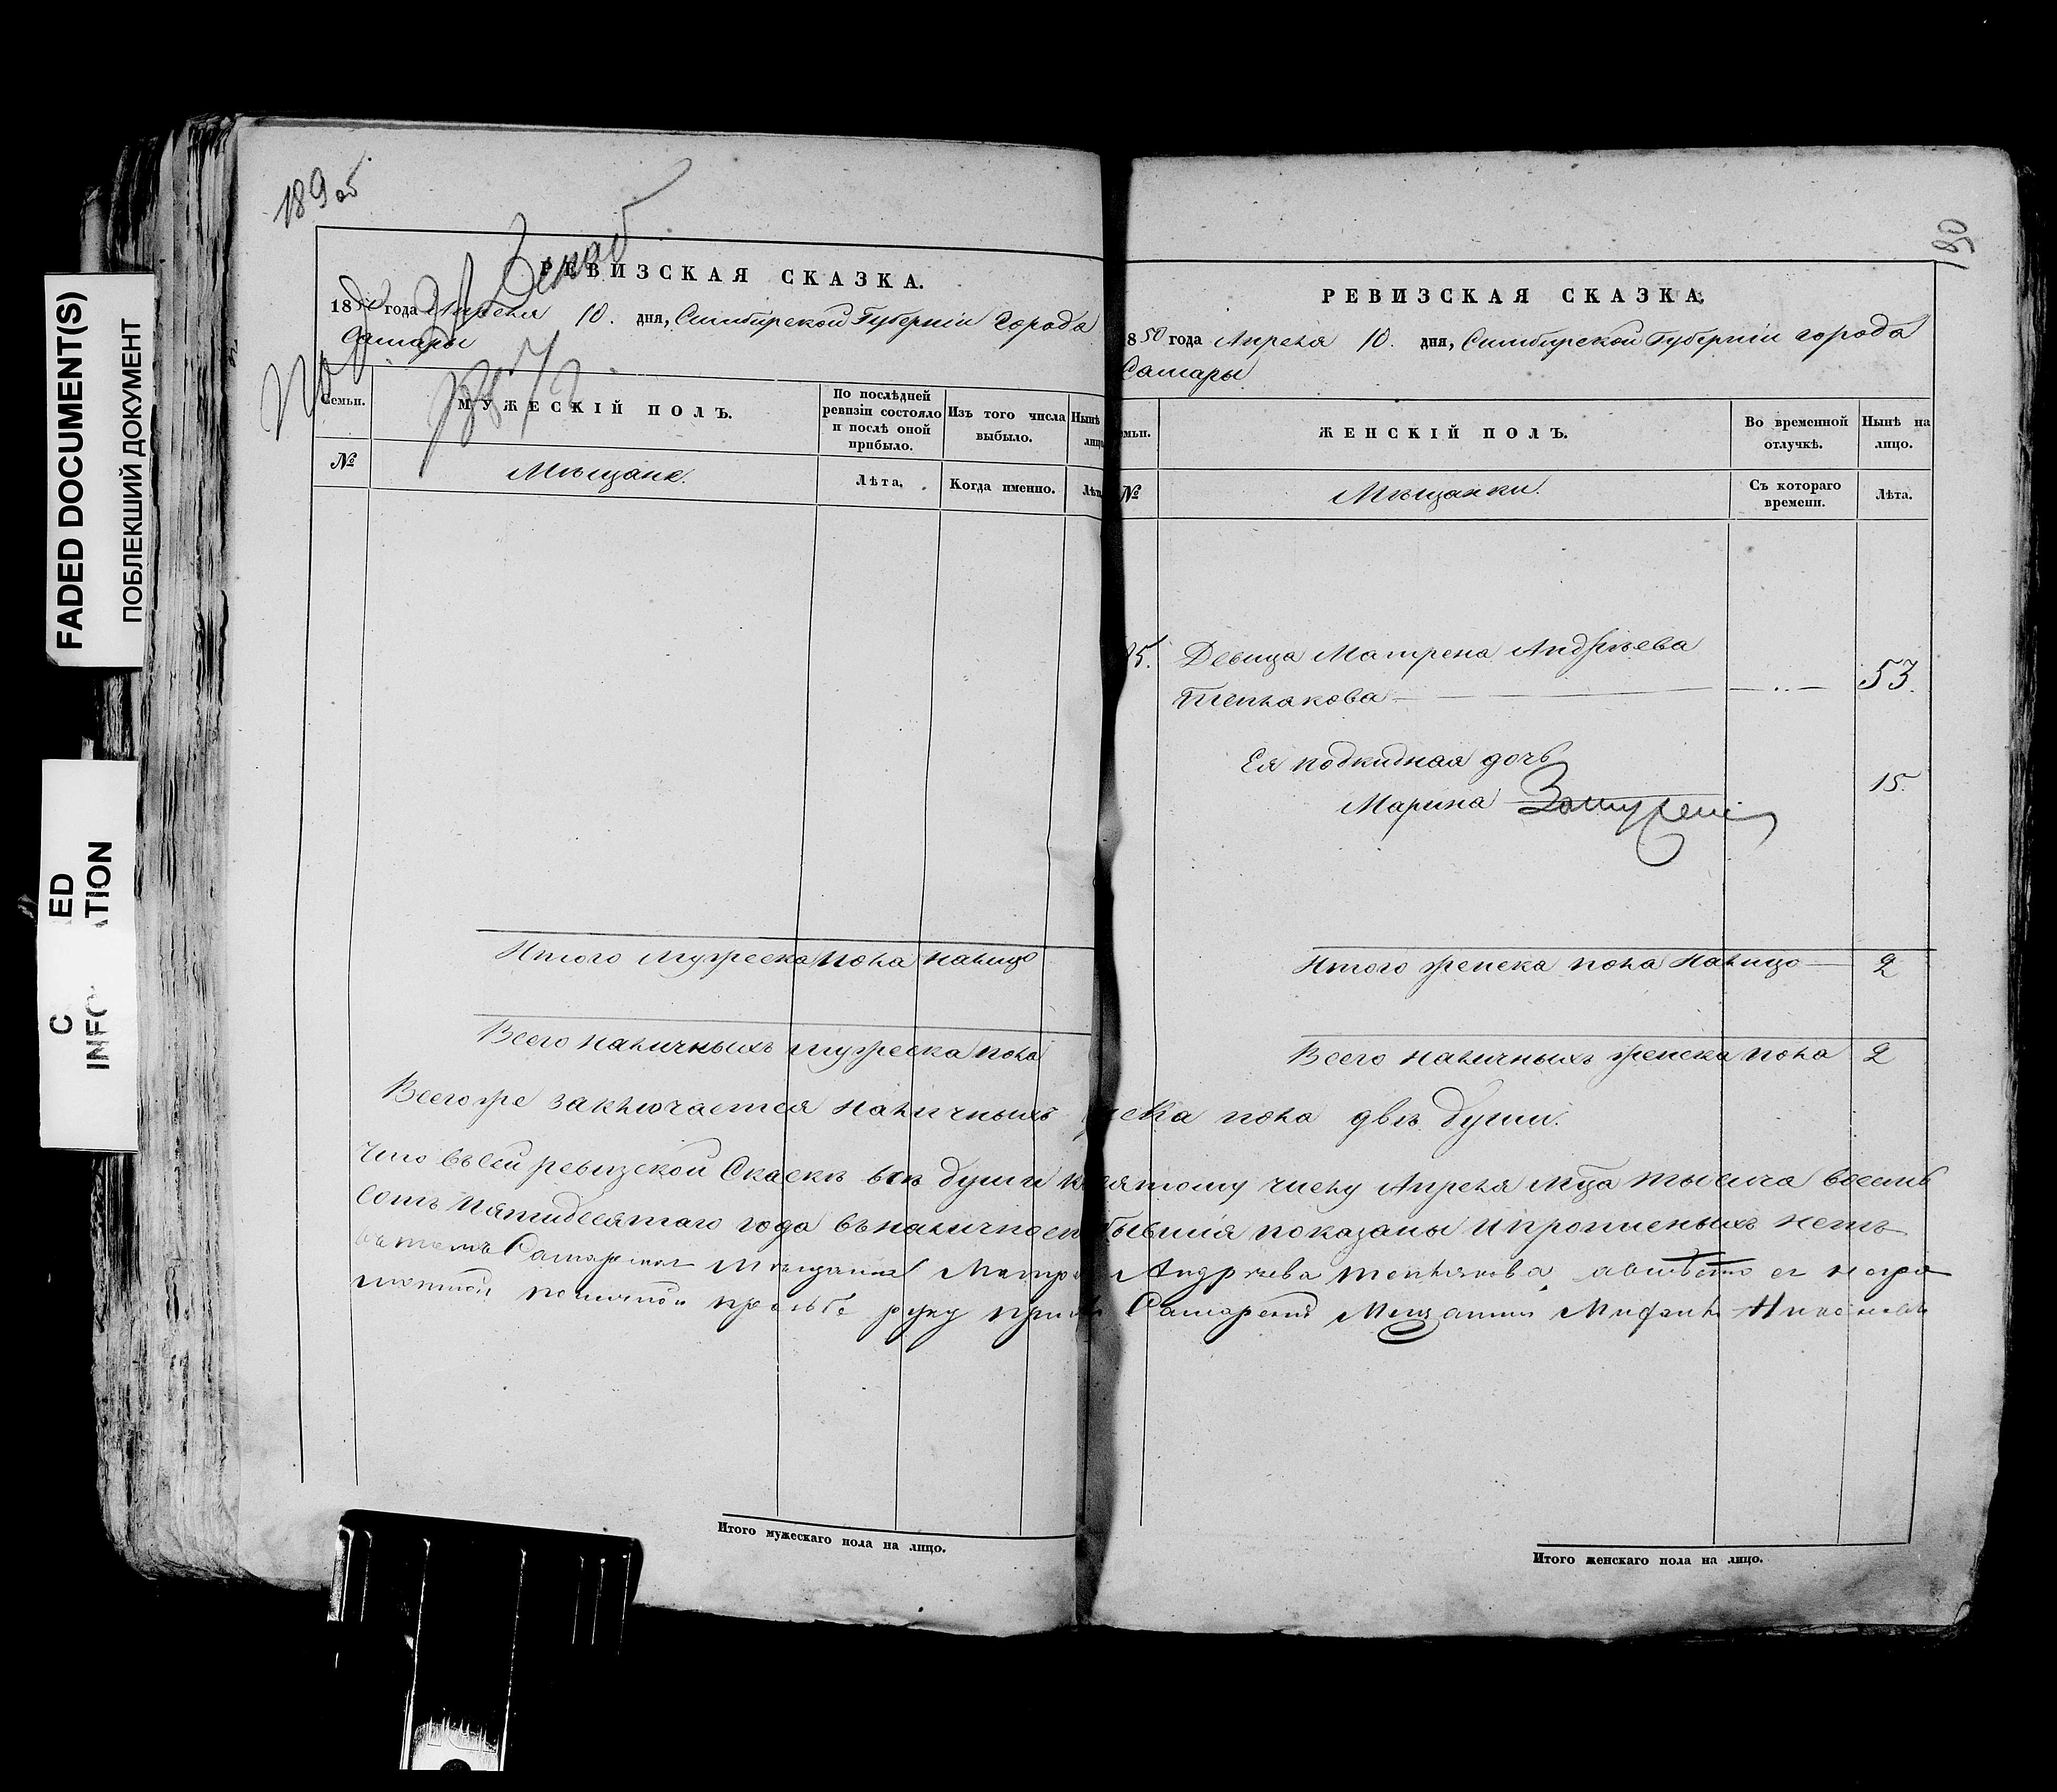 FADED DOCUMENT(S)
ПОБЛЕКШИЙ ДОКУМЕНТ
189 об
РЕВИЗСКАЯ СКАЗКА.
1850 года Апреля 10. дня, Симбирской Губерніи Города
Самары
Семьи.
МУЖЕСКІЙ ПОЛЪ.
По послѣдней ревизіи состояло и послѣ оной прибыло.
Изъ того числа выбыло.
Нынѣ
№
Мѣщане.
Лѣта.
Когда именно.
Итого мужеска пола налицо
Всего наличныхъ мужеска пола
Итого мужескаго пола на лицо.
190
РЕВИЗСКАЯ СКАЗКА.
850 года Апреля 10. дня, Симбирской Губерніи города
Самары
ЖЕНСКІЙ ПОЛЪ.
Во временной отлучкѣ.
Нынѣ на лицо.
№
Мѣщанки.
Съ котораго времени.
Лѣта.
5. Девица Матрена Андрѣева
Теплакова 53.
Ея подкидная дочь
Марина 15.
Итого женска пола налицо 2
Всего наличныхъ женска пола 2
Всегоже заключается наличныхъ ска пола двѣ души.
Что въ сей ревизской Скаскѣ всѣ души к сятому числу Апреля мца тысяча восемь
сотъ пятидесятаго года въ наличност бывшія показаны и прописныхъ нетъ
въ томъ Самарская Мещанка Матре Андреева Теплякова авместо ее негра
мотной поличной прозьбе руку прил Самарский Мещанин
Итого женскаго пола на лицо.